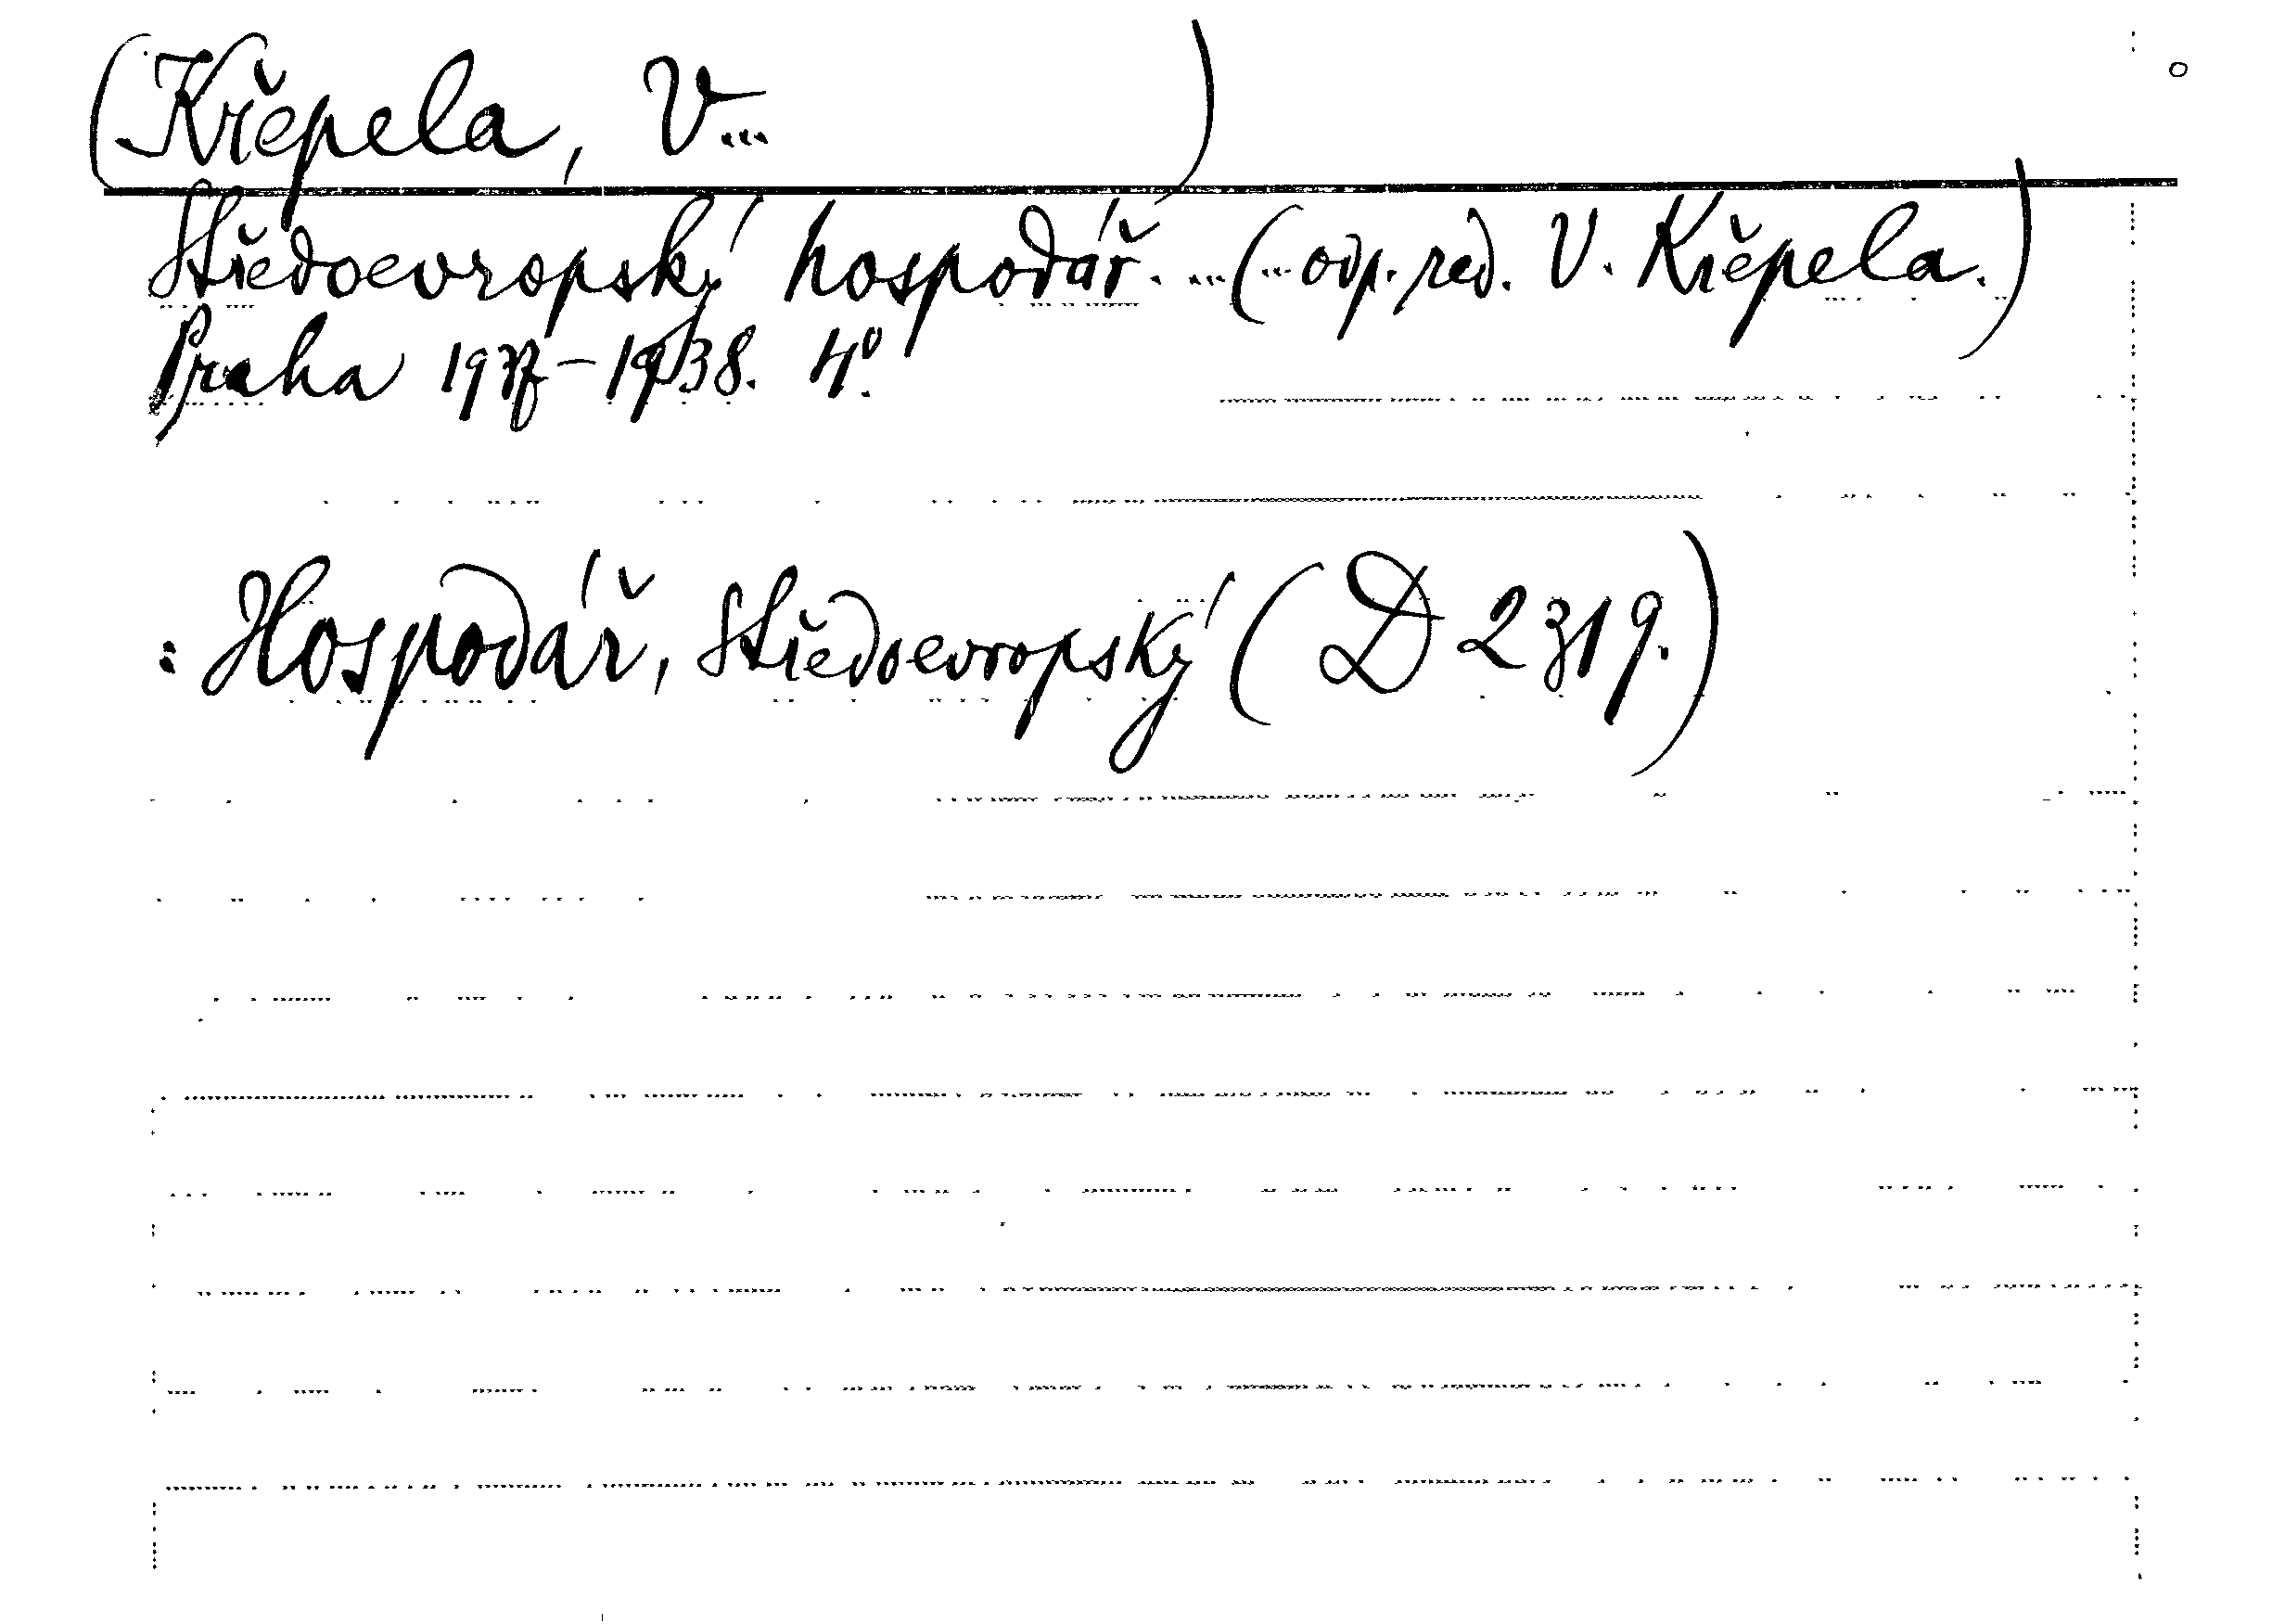 (Křepela, V... )
Středoevropský hospodář. ... (... odp. red. V. Křepela.)
Praha 1937-1938. 4°.
: Hospodář, středoevropský (D 2319.)